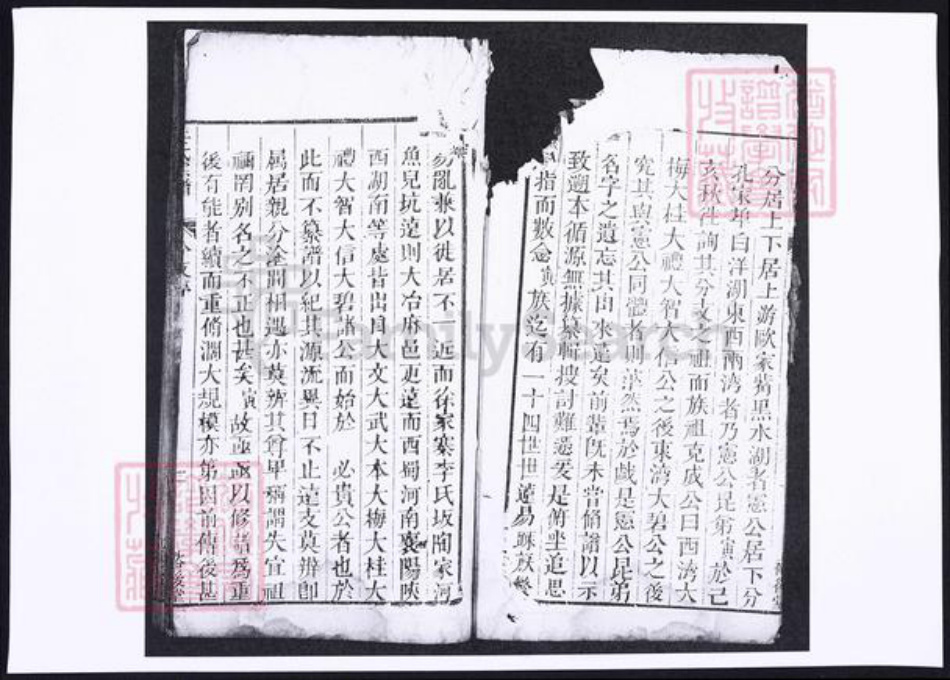 分居上下居上游歐家蒭黑水湖者憲公居下分
孔家埠白洋湖東西兩湾者乃憲公昆弟寅於己
亥秋往詢其分支之祖而族祖克成公曰西湾大
梅大桂大禮大智大信公之後東湾大碧公之後
究其與憲公同體者則茫然焉於戲是憲公昆弟
名字之遺忘其由來遠矣前輩旣未嘗脩譜以示
致遡本循源無據纂輯搜討難憑爰是俯坐追思
指而數念寅族迄有一十四世世遠易踈族繁
易亂兼以徙居不一近而徐家寨李氏坂陶家河
魚兒坑遠則大冶麻邑更遠而西蜀河南襄陽陝
西湖南等處皆出自大文大武大本大梅大桂大
禮大智大信大碧諸公而始於 必貴公者也於
此而不纂譜以紀其源流異日不止遠支莫辨卽
屬居親分塗間相遇亦莫辨其尊卑稱謂失宜祖
禰罔別名之不正也甚矣寅故亟亟以修譜爲重
後有能者續而重脩濶大規模亦第因前傳後甚
FamilySearch